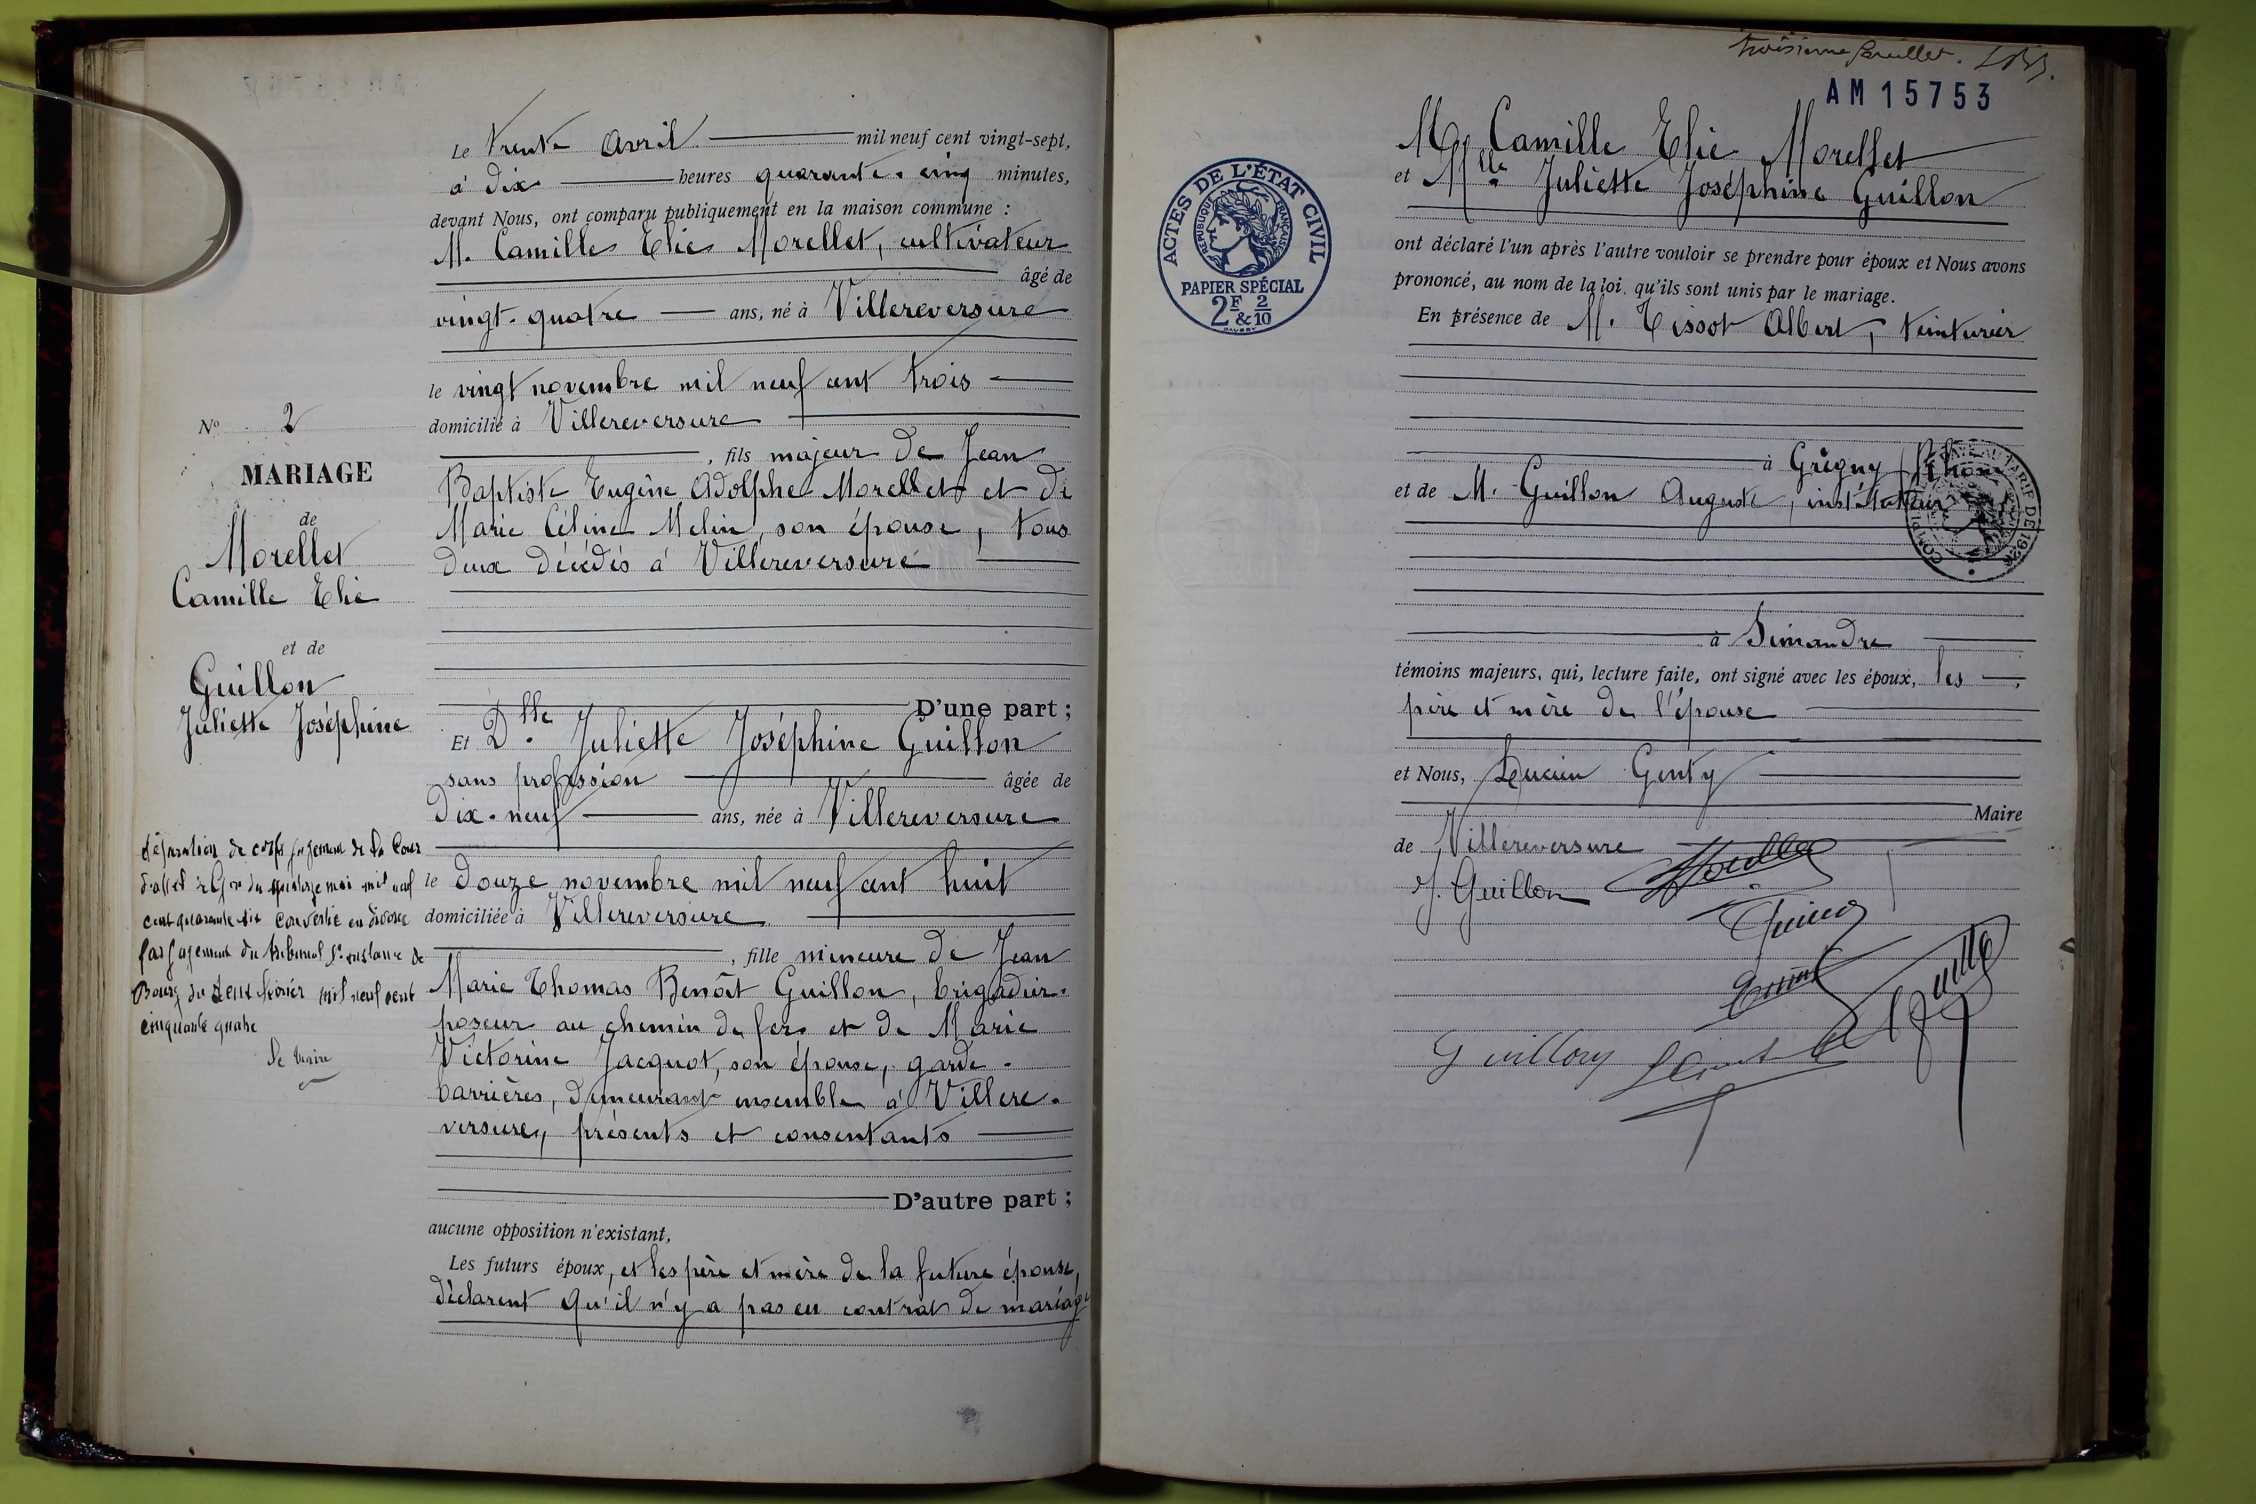 Le trente avril mil neuf cent vingt-sept,
à dix heures quarante-cinq minutes,
devant Nous, ont comparu publiquement en la maison commune :
M. Camille Elie Morellet, cultivateur
âgé de
vingt-quatre ans, né à Villereversure
le vingt novembre mil neuf cent trois
domicilié à Villereversure
, fils majeur de Jean
Baptiste Eugène Adolphe Morellet et de
Marie Céline Melin, son épouse, tous
deux décédés à Villereversure
D'une part ;
Et Dlle Juliette Joséphine Guillon
sans profession âgée de
dix-neuf ans, née à Villereversure
le douze novembre mil neuf cent huit
domiciliée à Villereversure
, fille mineure de Jean
Marie Thomas Benoît Guillon, brigadier-
poseur au chemin de fer et de Marie
Victorine Jacquot, son épouse, garde-
barrières, demeurant ensemble à Villere-
versure, présents et consentants
D'autre part ;
aucune opposition n'existant,
Les futurs époux, et les père et mère de la future épouse,
déclarent qu'il n'y a pas eu contrat de mariage
No 2
MARIAGE
de
Morellet
Camille Elie
et de
Guillon
Juliette Joséphine
séparation de corps jugement de la Cour
d'appel de Lyon du quatorze mai mil neuf
cent quarante six convertie en divorce
par jugement du tribunal 1e instance de
Bourg du deux février mil neuf cent
cinquante quatre
Le Maire
troisième feuillet.
AM 15753
ACTES DE L'ÉTAT CIVIL
RÉPUBLIQUE FRANÇAISE
PAPIER SPÉCIAL
2F & 2/10
M. Camille Elie Morellet
et Mlle Juliette Joséphine Guillon
ont déclaré l'un après l'autre vouloir se prendre pour époux et Nous avons
prononcé, au nom de la loi, qu'ils sont unis par le mariage.
En présence de M. Tissot Albert, teinturier
à Grigny (Rhône)
et de M. Guillon Auguste, instituteur
TARIF DE
à Simandre
témoins majeurs, qui, lecture faite, ont signé avec les époux, les
père et mère de l'épouse
et Nous, Lucien Genty
Maire
de Villereversure
J. Guillon
Guillon